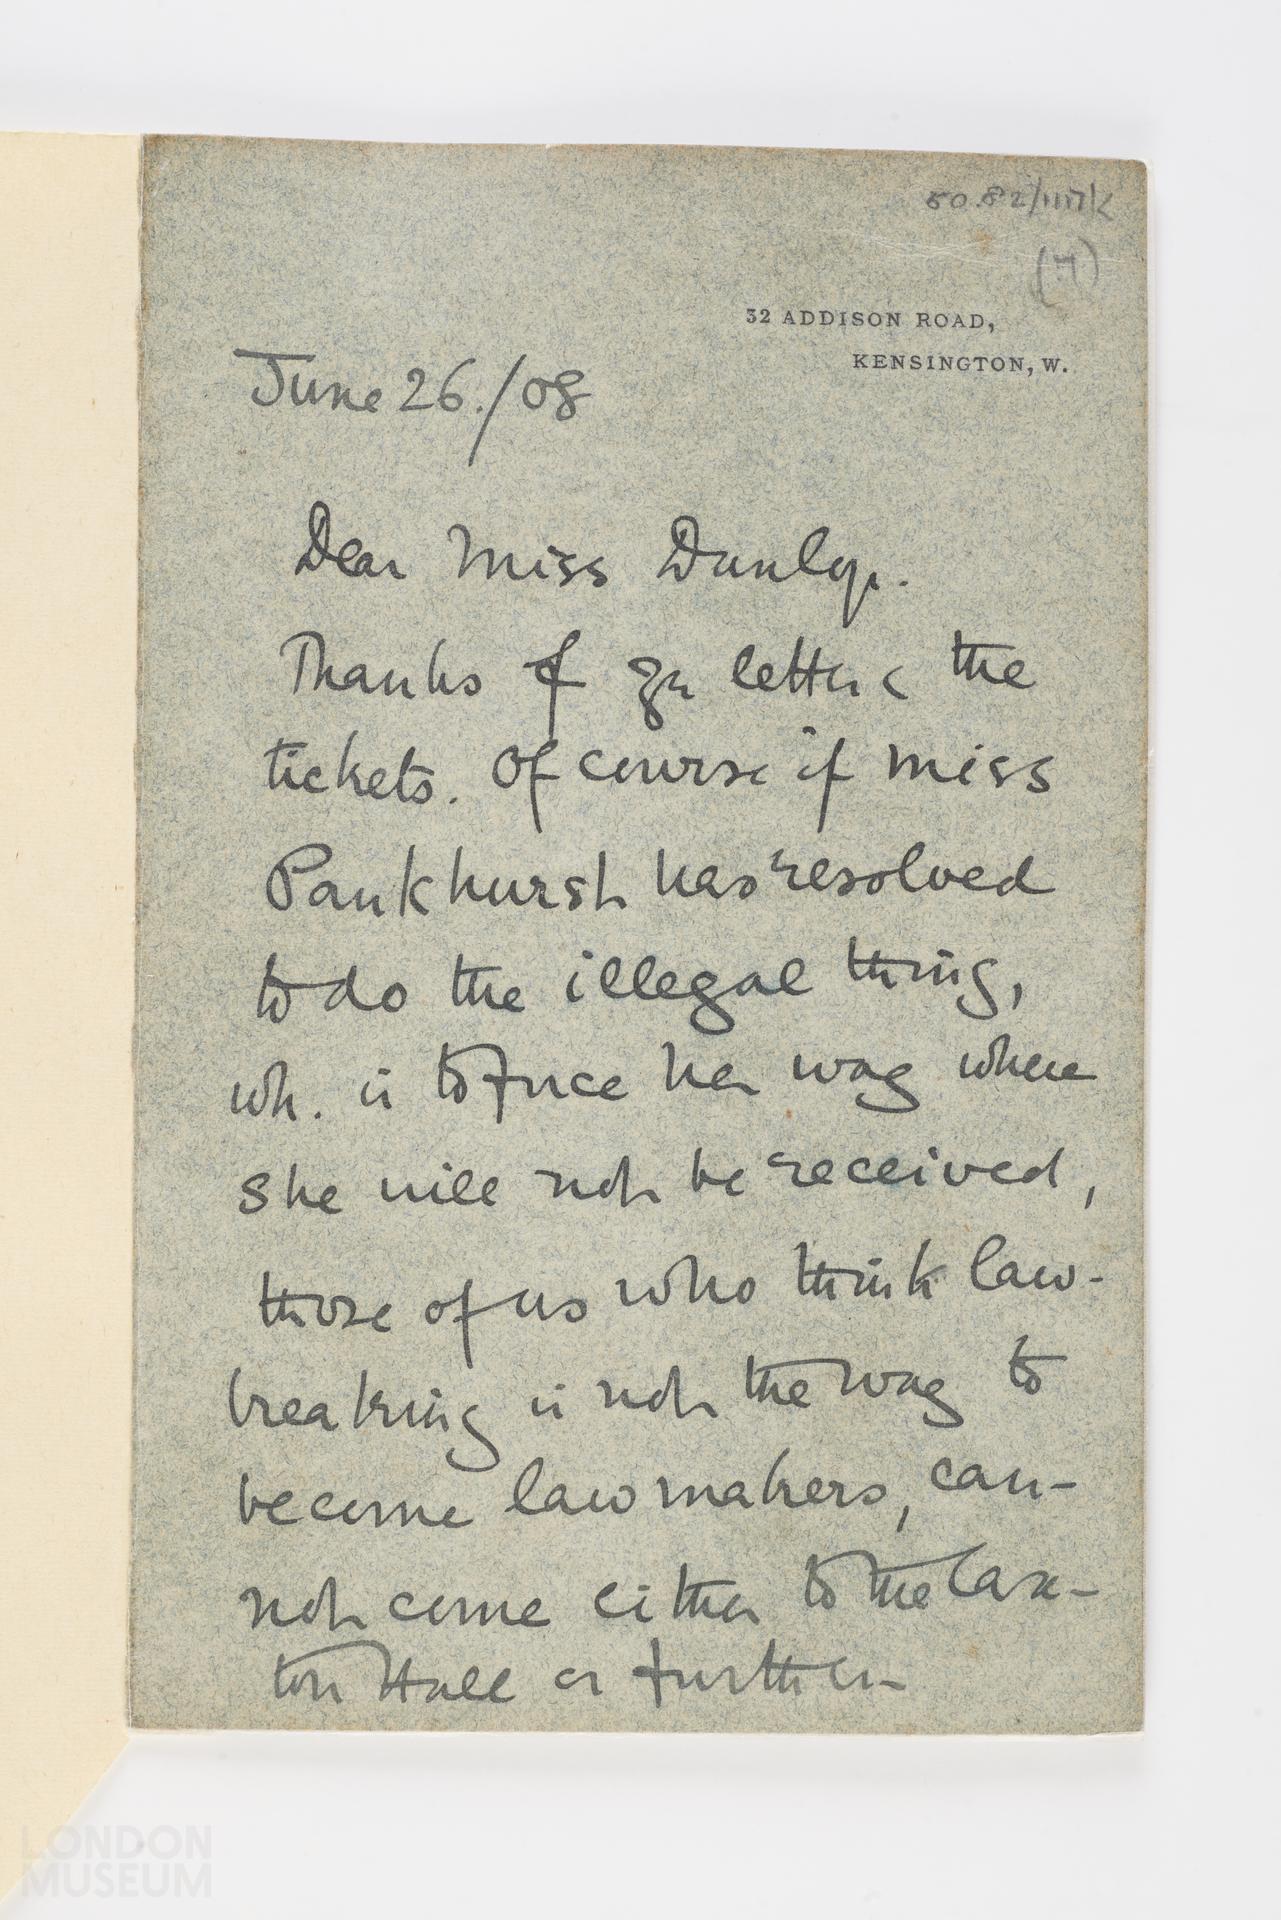 50.82/1117k
(7)
32 ADDISON ROAD,
KENSINGTON, W.
June 26./08
Dear Miss Dunlop.
Thanks f yr letter & the
tickets. Of course if Miss
Pankhurst has resolved
to do the illegal thing,
wh. is to force her way where
she will not be received,
those of us who think law-
breaking is not the way to
become lawmakers, can-
not come either to the Cax-
ton Hall or further-
LONDON
MUSEUM